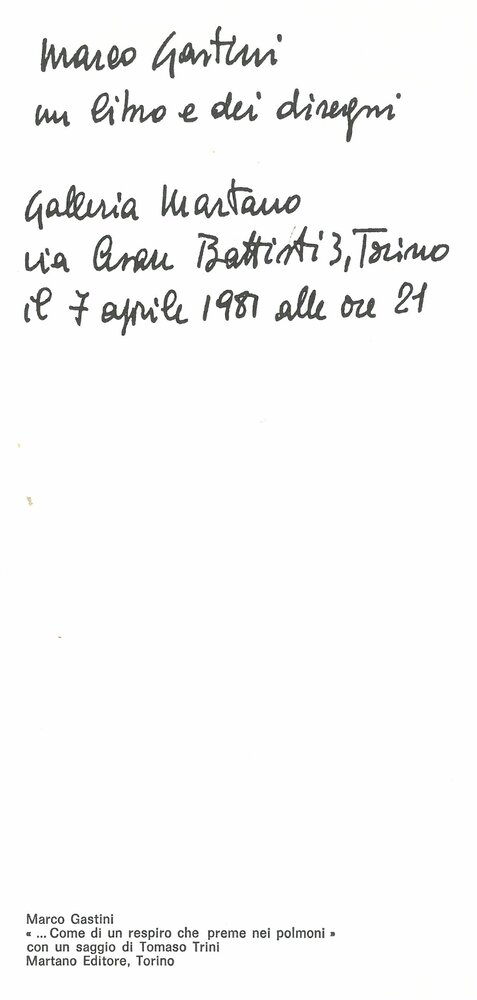 Marco Gastini
un libro e dei disegni
Galleria Martano
via Cesare Battisti 3, Torino
il 7 aprile 1981 alle ore 21
Marco Gastini
« ... Come di un respiro che preme nei polmoni »
con un saggio di Tomaso Trini
Martano Editore, Torino